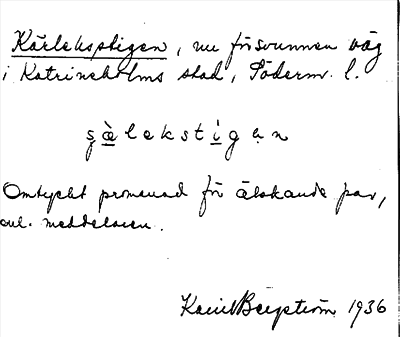 Kärleksstigen, nu försvunnen väg
i Katrineholms stad, Söderm. l.
ṣæ̀lekstìgạn
Omtyckt promenad för älskande par,
enl. meddelaren.
Karin Bergström 1936